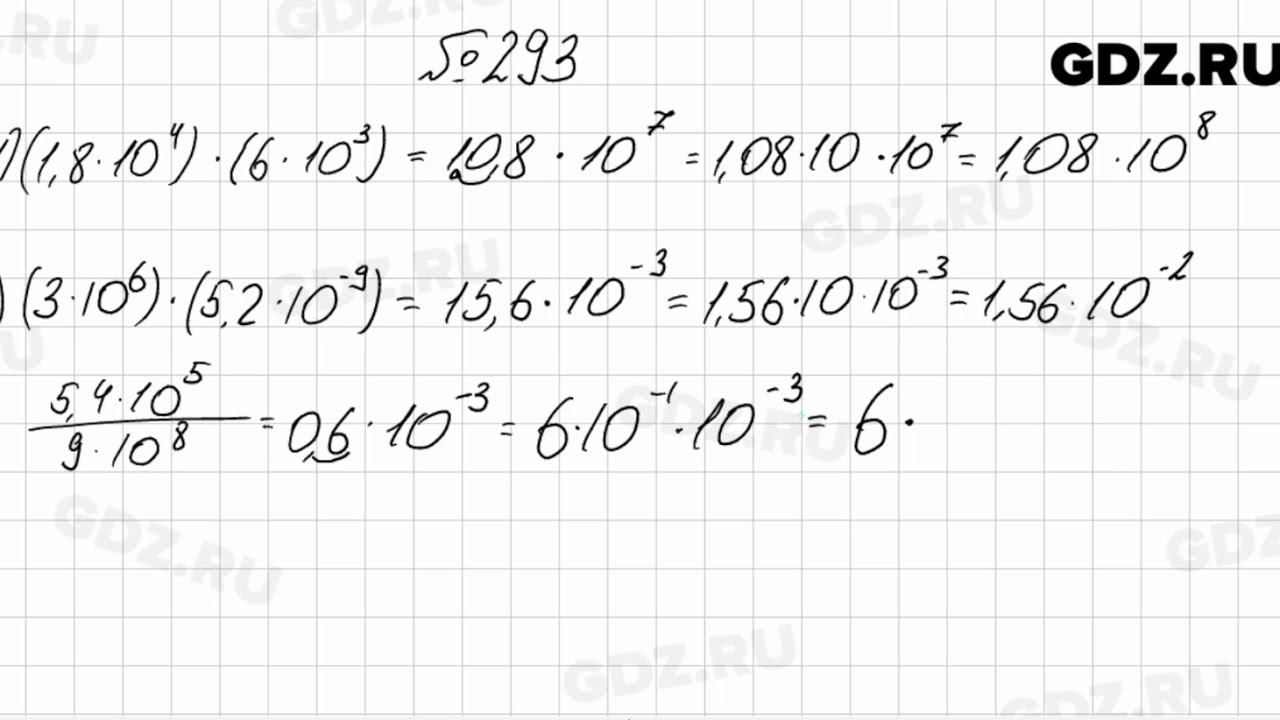 GDZ.RU
№293
1)(1,8·10⁴)·(6·10³) = 10,8·10⁷ = 1,08·10·10⁷ = 1,08·10⁸
)(3·10⁶)·(5,2·10⁻⁹) = 15,6·10⁻³ = 1,56·10·10⁻³ = 1,56·10⁻²
5,4·10⁵
9·10⁸
= 0,6·10⁻³ = 6·10⁻¹·10⁻³ = 6·